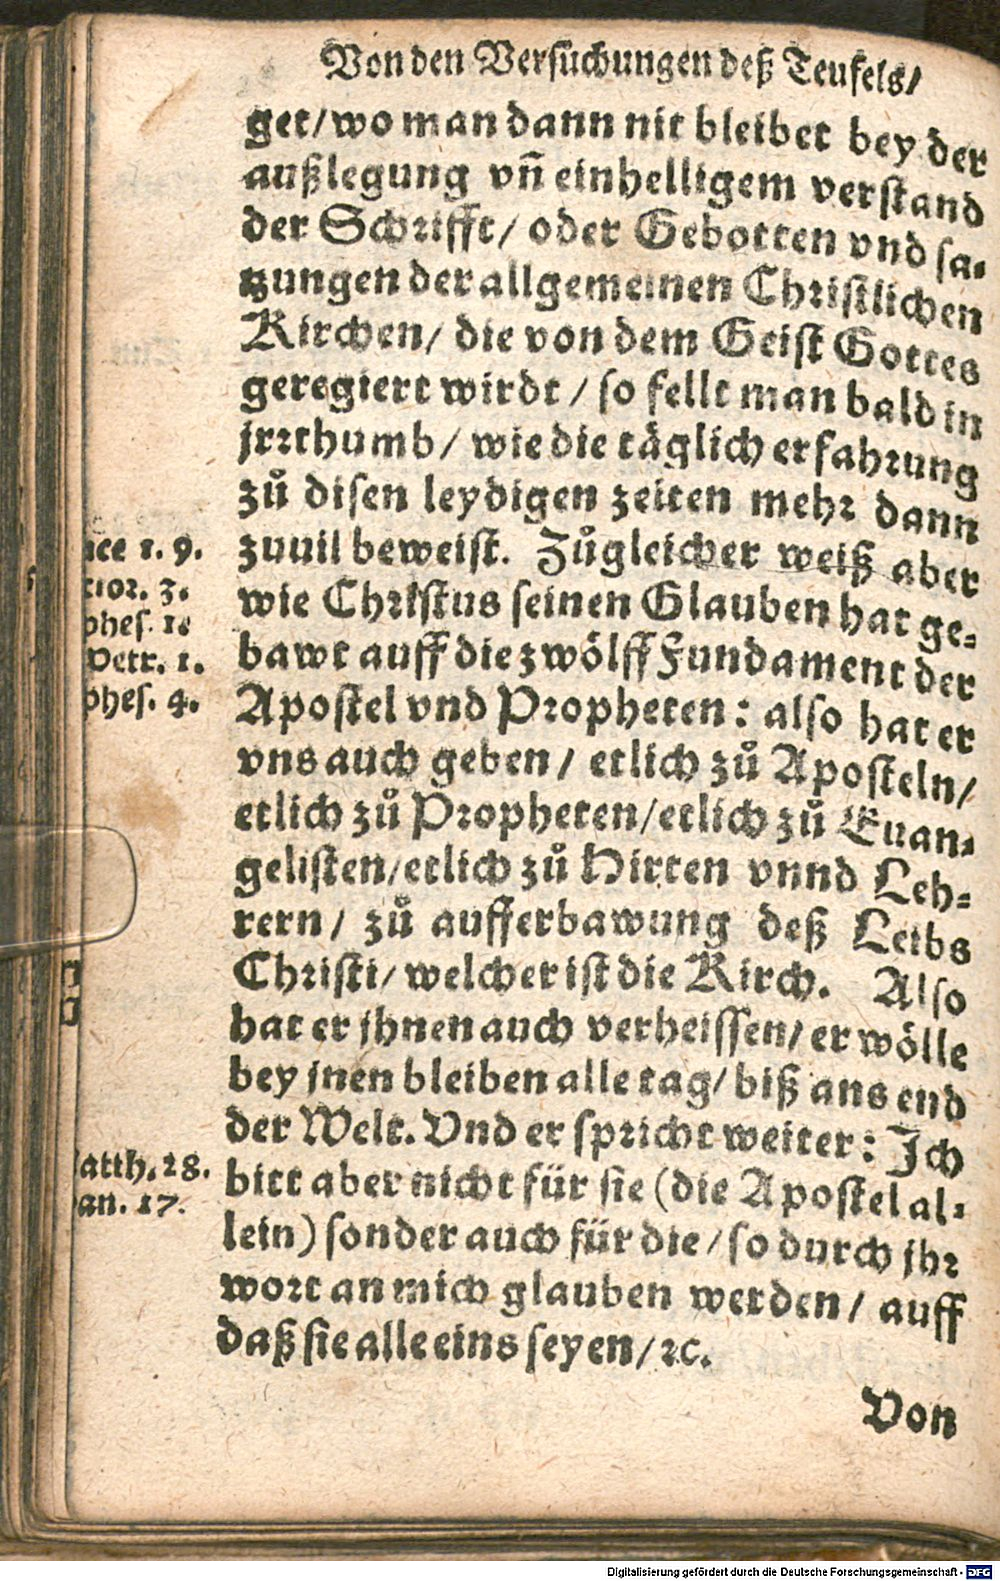 Von den Versuchungen deß Teufels/
get/wo man dann nit bleibet bey der
außlegung vñ einhelligem verstand
der Schrifft/ oder Gebotten vnd sa-
tzungen der allgemeinen Christlichen
Kirchen/ die von dem Geist Gottes
geregiert wirdt / so fellt man bald in
jrrthumb/ wie die täglich erfahrung
zů disen leydigen zeiten mehr dann
zuuil beweist. Zůgleicher weiß aber
wie Christus seinen Glauben hat ge-
bawt auff die zwölff Fundament der
Apostel vnd Propheten: also hat er
vns auch geben/ etlich zů Aposteln/
etlich zů Propheten/etlich zů Euan-
gelisten/etlich zů Hirten vnnd Leh-
rern/ zů aufferbawung deß Leibs
Christi/ welcher ist die Kirch. Also
hat er jhnen auch verheissen/ er wölle
bey jnen bleiben alle tag/ biß ans end
der Welt. Vnd er spricht weiter: Jch
bitt aber nicht für sie (die Apostel al-
lein) sonder auch für die/ so durch jhr
wort an mich glauben werden/ auff
daß sie alle eins seyen/ ꝛc.
Von
uce 1. 9.
rior. 3.
phes. 1.
Petr. 1.
phes. 4.
atth. 28.
an. 17.
Digitalisierung gefördert durch die Deutsche Forschungsgemeinschaft - DFG